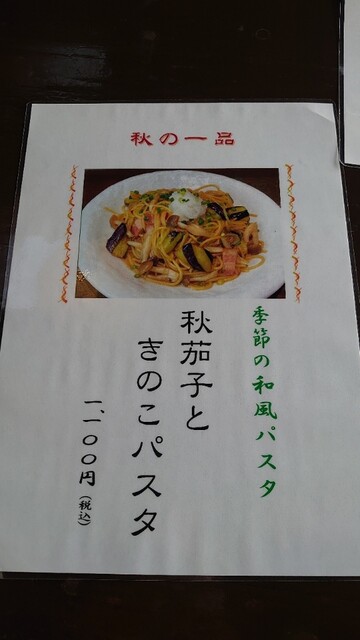 秋の一品
季節の和風パスタ
秋茄子と
きのこパスタ
一、一〇〇円(税込)